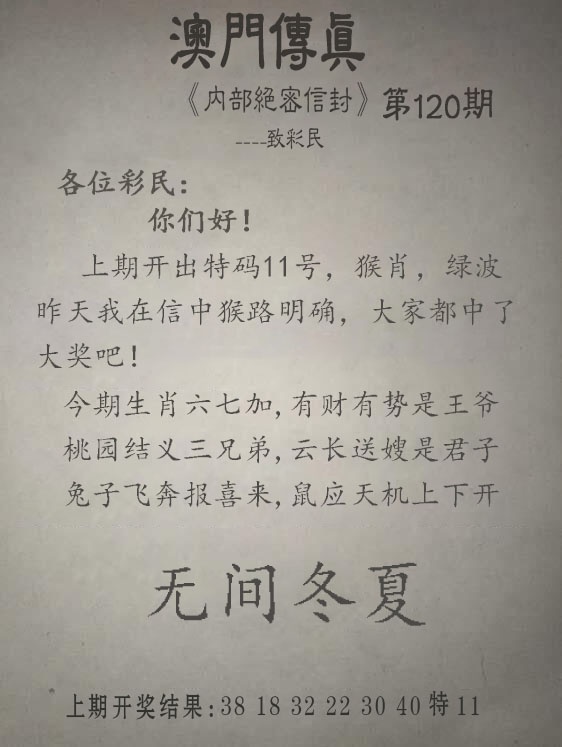 澳門傳真
《内部絕密信封》第120期
----致彩民
各位彩民：
你们好！
上期开出特码11号，猴肖，绿波
昨天我在信中猴路明确，大家都中了
大奖吧！
今期生肖六七加,有财有势是王爷
桃园结义三兄弟,云长送嫂是君子
兔子飞奔报喜来,鼠应天机上下开
无间冬夏
上期开奖结果:38 18 32 22 30 40 特 11